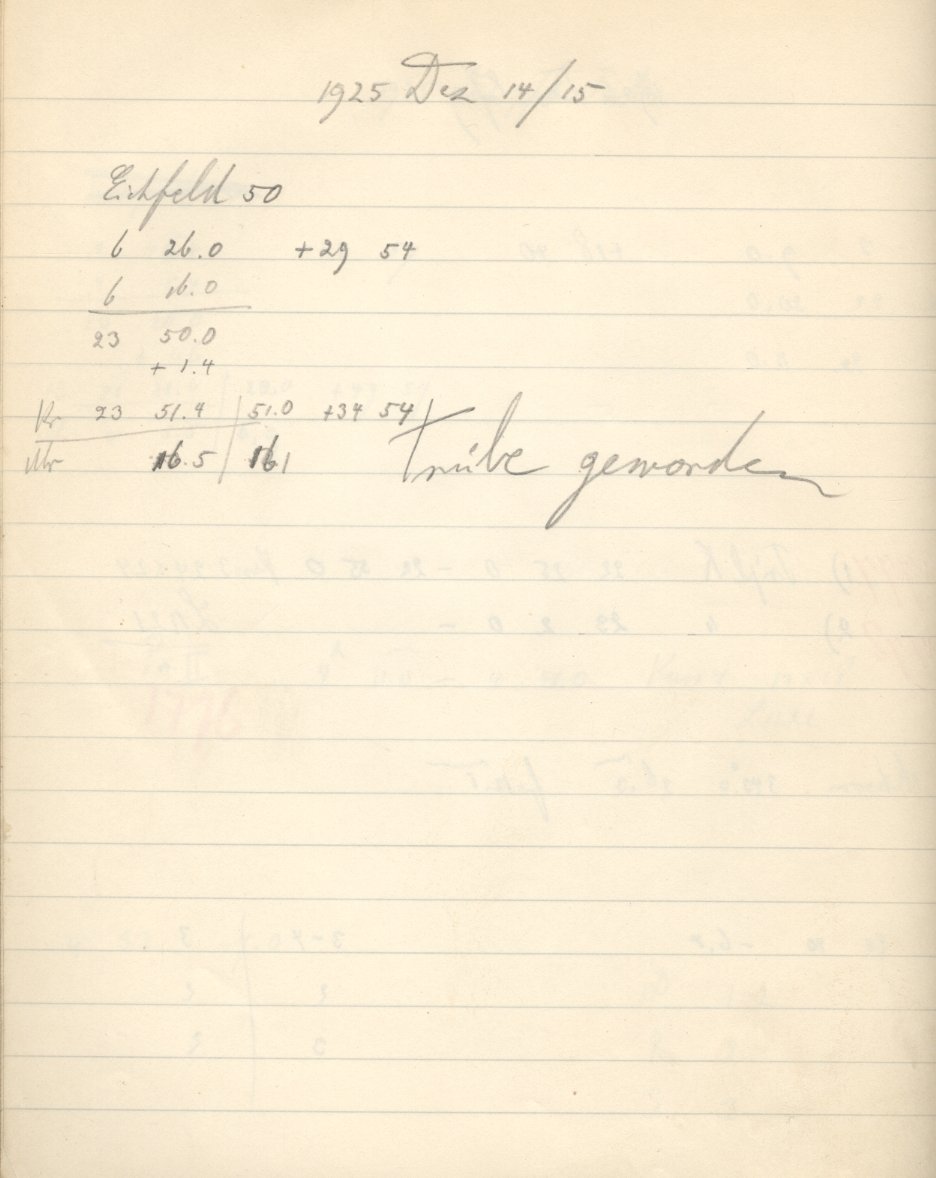 1925 Dez 14/15
Eichfeld 50
6 26.0 +29 54
6 16.0
23 50.0
+ 1.4
Kr 23 51.4 | 51.0 +34 54
16.5 | 161 Trübe geworden